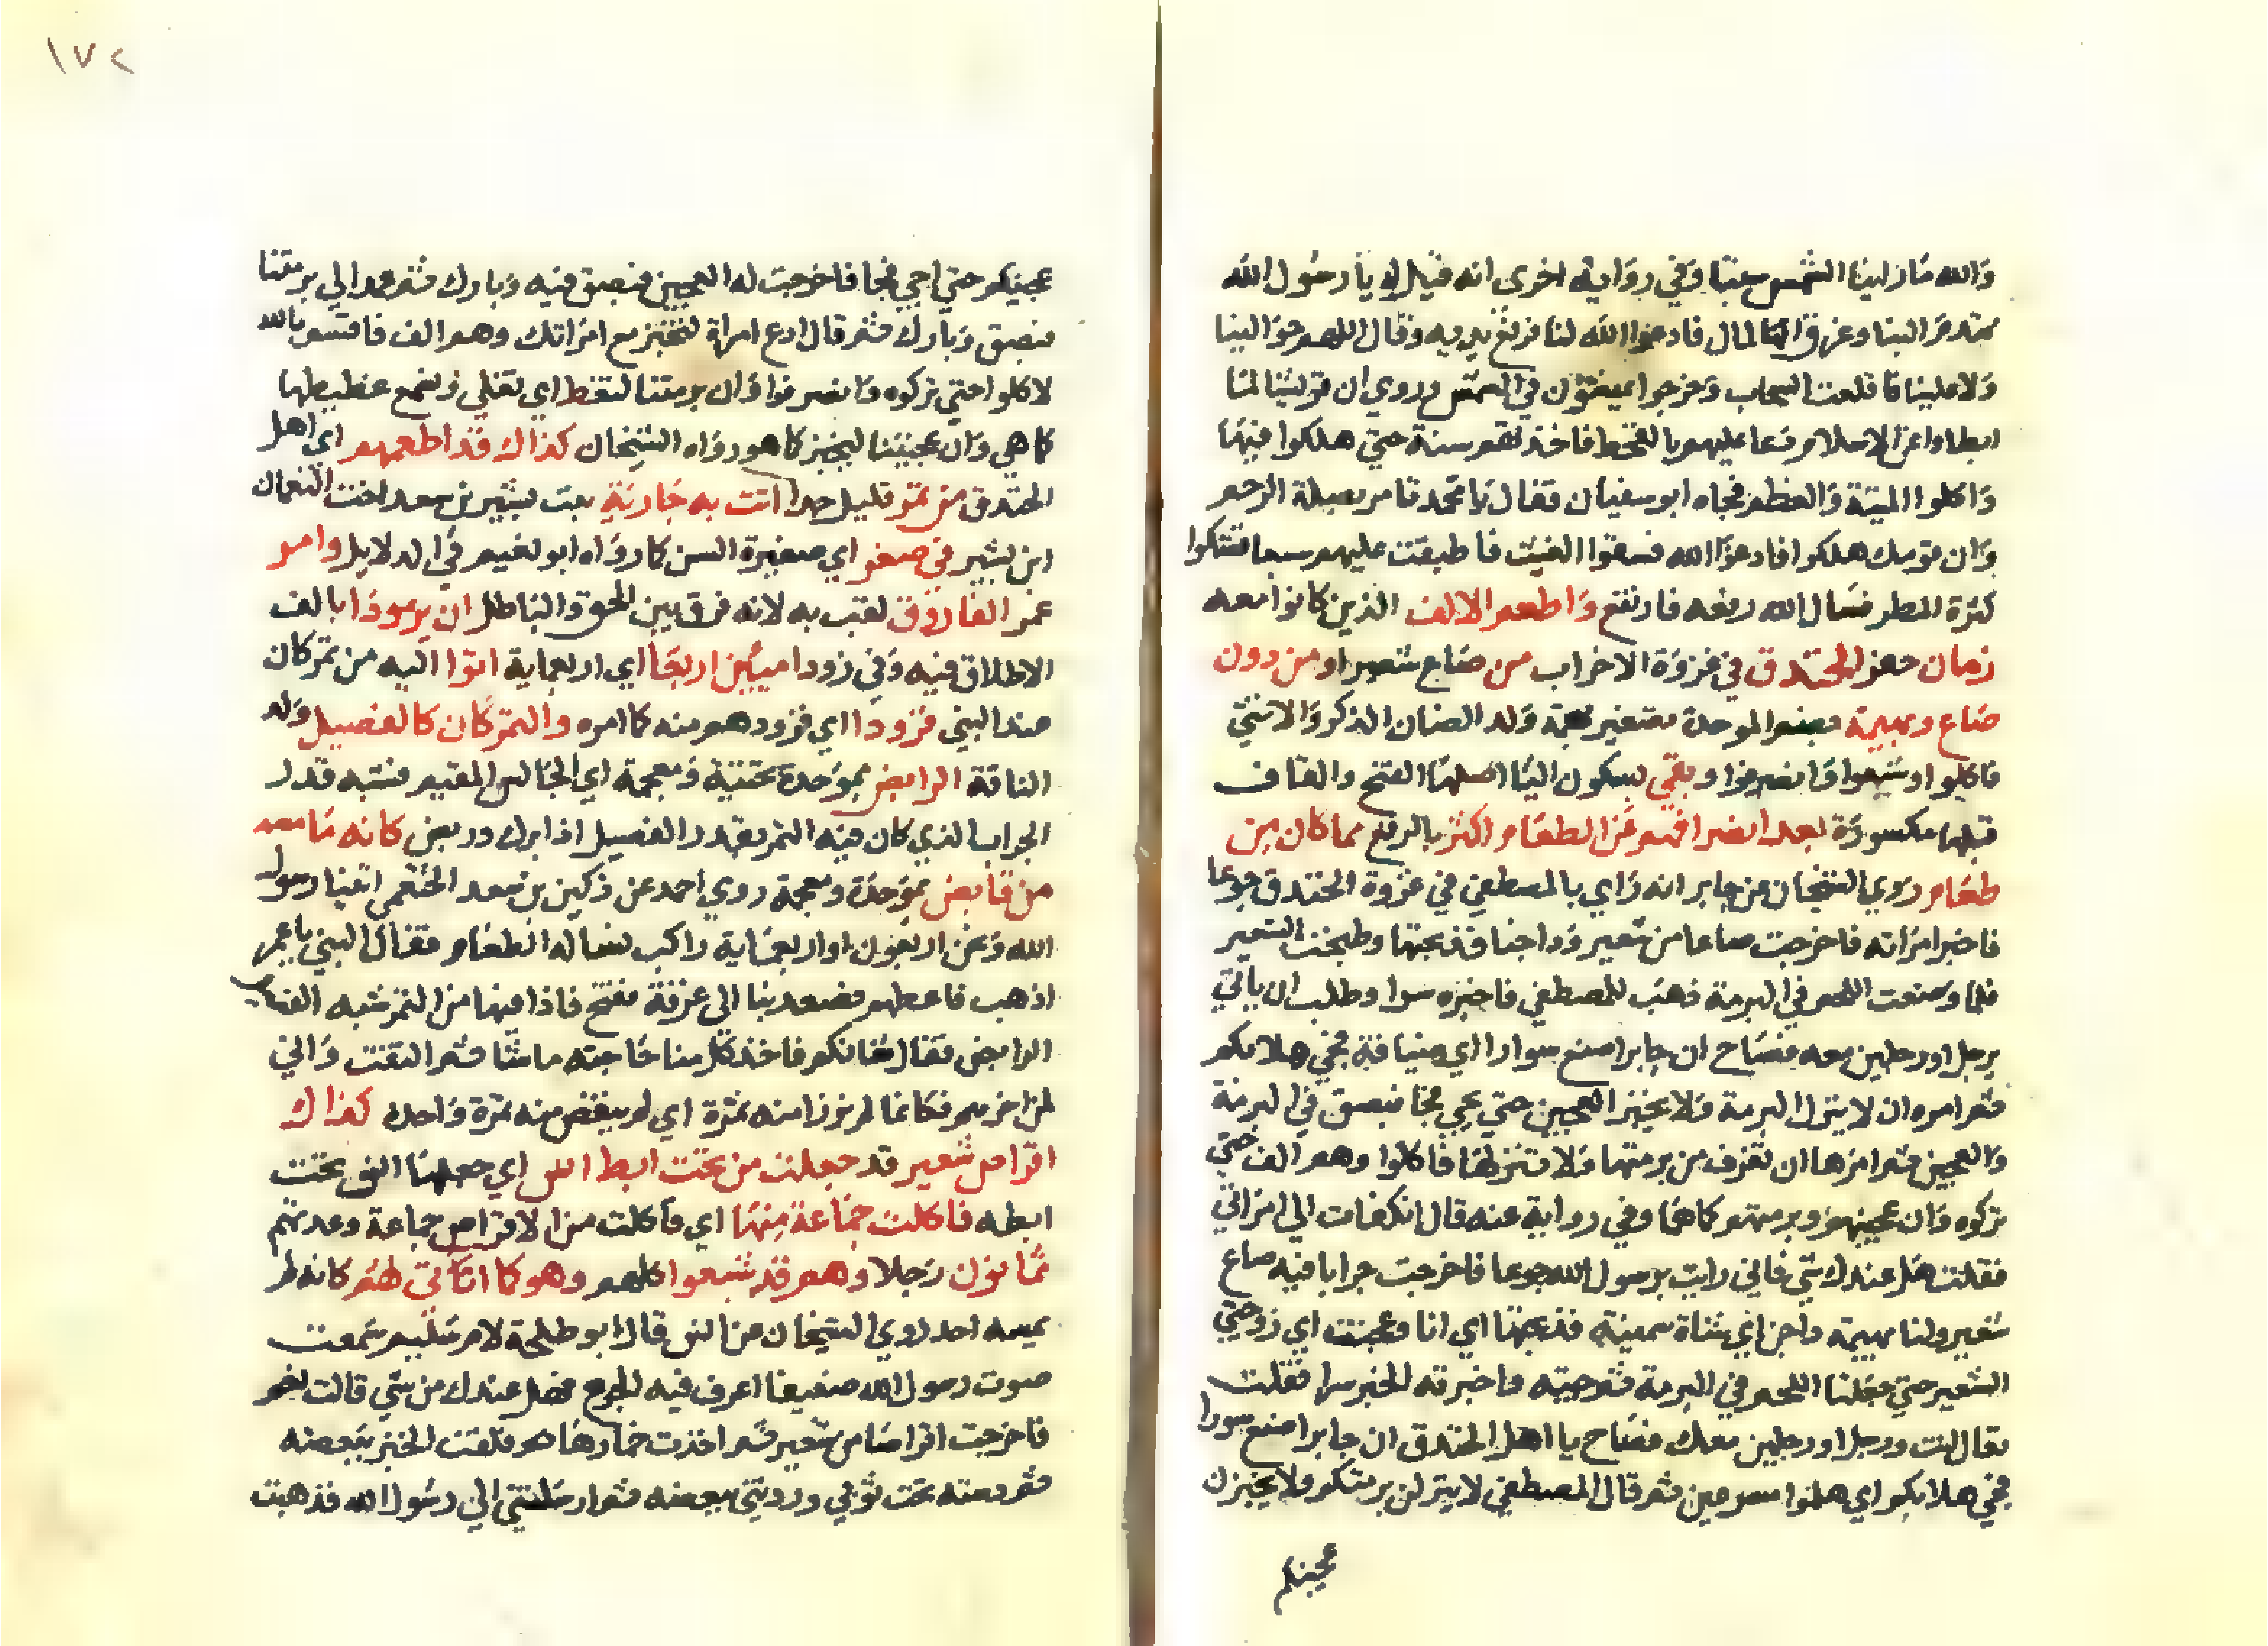 والله ما رأينا الشمس سبتا وفي رواية اخرى انه قيل له يا رسول الله
تهدم البنا وغرق المال فادعوا الله لنا فرفع يديه وقال اللهم حوالينا
ولا علينا فاقلعت السحاب وخرجوا يمشون في الشمس وروي ان قريشا لما
ابطاوا عن الاسلام دعا عليهم بالقحط فاخذتهم سنة حتى هلكوا فيها
واكلوا الميتة والعظم فجاه ابو سفيان فقال يا محمد تامر بصلة الرحم
وان قومك هلكوا فادعوا الله فسقوا الغيث فاطبقت عليهم سبعا فشكوا
كثرة المطر فسال الله رفعه فارتفع واطعم الالف الذين كانوا معه
زمان حفر الخندق في غزوة الاحزاب من صاع شعير او من دون
صاع وبهيمة بضم الموحدة تصغير بهمة ولد الضان الذكر والانثى
فاكلوا وشبعوا وانصرفوا وبقي بسكون اليا اصلها الفتح والقاف
قبلها مكسورة بعد انصرافهم عن الطعام اكثر بالرفع مما كان من
طعام روي الشيخان عن جابر انه راي بالمصطفى في غزوة الخندق جوعا
فاخبر امراته فاخرجت صاعا من شعير وداجنا فذبحتها وطبخت الشعير
فلما وضعت اللحم في البرمة ذهب للمصطفى فاخبره سرا وطلب ان ياتي
برجل او رجلين معه فصاح ان جابرا صنع سورا اي ضيافة فحي هلا بكم
ثم امره ان لا ينزل البرمة ولا يخبز العجين حتى يجي فجا فبصق في البرمة
والعجين ثم امرها ان تغرف من برمتها ولا تنزلها فاكلوا وهم الف حتى
تركوه وان عجينهم وبرمتهم كما هما وفي رواية عنه قال انكفات الى امراتي
فقلت هل عندك شي فاني رايت برسول الله جوعا فاخرجت جرابا فيه صاع
شعير ولنا بهيمة داجن اي شاة سمينة فذبحتها اي انا وعجنت اي زوجتي
الشعير حتى جعلنا اللحم في البرمة ثم جيته واخبرته الخبر سرا فقلت
تعال انت ورجل او رجلين معك فصاح يا اهل الخندق ان جابرا صنع سورا
فحي هلا بكم اي هلموا مسرعين ثم قال المصطفى لا ينزلن برمتكم ولا يخبزن
عجينكم
١٧٢
عجينكم حتى اجي فجا فاخرجت له العجين فبصق فيه وبارك ثم عمد الى برمتنا
فبصق وبارك ثم قال ادع امراة لتخبز مع امراتك وهم الف فاقسم بالله
لاكلوا حتى تركوه وانصرفوا وان برمتنا لتغط اي تغلي ويسمع غطيطها
كما هي وان عجيننا ليخبز كما هو رواه الشيخان كذاك قد اطعمهم اي اهل
الخندق من تمر قليل جدا اتت به جارية بنت لبشير بن سعد اخت النعمان
ابن بشير في صغر اي صغيرة السن كما رواه ابو نعيم في الدلايل وامر
عمر الفاروق لقب به لانه فرق بين الحق والباطل ان يزودا بالف
الاطلاق فيه وفي زودا ميئين اربعا اي اربعماية اتوا اليه من تمر كان
عند النبي فزودا اي فزودهم منه كما امره والتمر كان كالفصيل ولد
الناقة الرابض بموحدة تحتية ومعجمة اي الجالس المقيم فشبه قدر
الجراب الذي كان فيه التمر بقدر الفصيل اذا برك وربض كانه ما مسه
من قابض بموحدة ومعجمة روي احمد عن دكين بن سعد الخثعمي اتينا رسول
الله ونحن اربعون او اربعماية راكب نساله الطعام فقال النبي يا عمر
اذهب فاعطهم فصعد بنا الى غرفة ففتح فاذا فيها من التمر شبه الفصيل
الرابض فقال شانكم فاخذ كل منا حاجته ما شا ثم التفت واني
لمن اخرهم فكانما لم نرزا منه تمرة اي لم ينقص منه تمرة واحدة كذاك
اقراص شعير قد جعلت من تحت ابط انس اي جعلها انس تحت
ابطه فاكلت جماعة منها اي فاكلت من الاقراص جماعة وعدتهم
ثمانون رجلا وهم قد شبعوا كلهم وهو كما اتى لهم كان لم
يمسه احد روي الشيخان عن انس قال ابو طلحة لام سليم سمعت
صوت رسول الله ضعيفا اعرف فيه الجوع فهل عندك من شي قالت نعم
فاخرجت اقراصا من شعير ثم اخذت خمارها فلفت الخبز ببعضه
ثم دسته تحت ثوبي وردتني ببعضه ثم ارسلتني الى رسول الله فذهبت